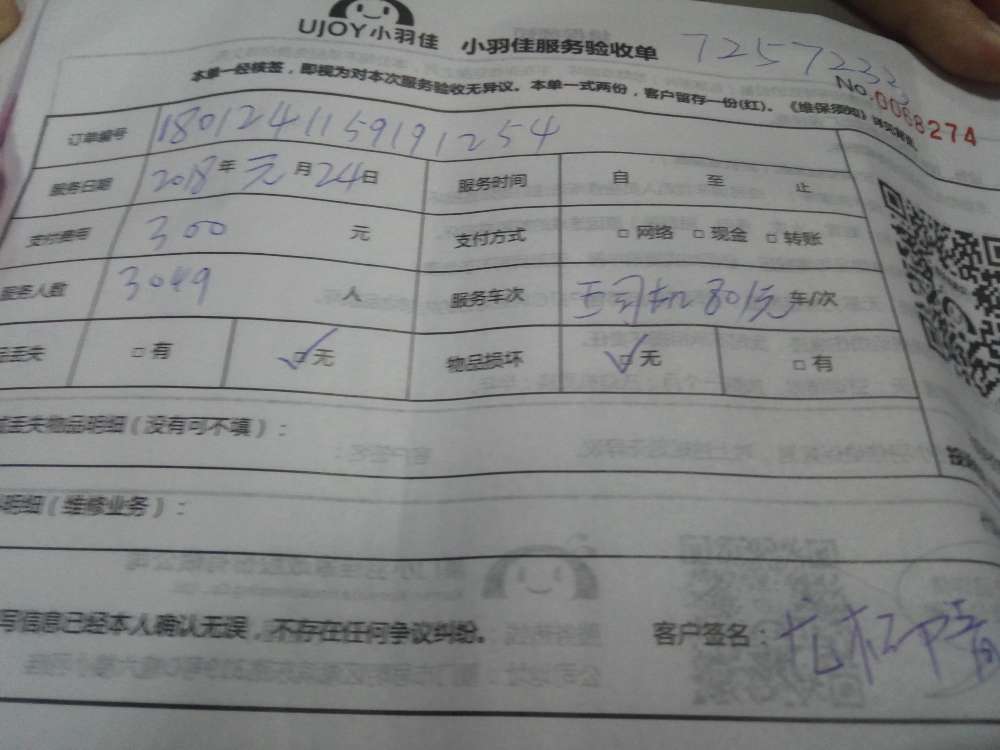 UJOY小羽佳 小羽佳服务验收单 7257233
No.0068274
本单一经核签，即视为对本次服务验收无异议。本单一式两份，客户留存一份(红)。《维保须知》详见背面。
订单编号 1801241159191254
服务日期 2018年元月24日 服务时间 自 至 止
支付费用 300 元 支付方式 □ 网络 □ 现金 □ 转账
服务人数 3049 人 服务车次 王司机 801元 车/次
品丢失 □ 有 □ 无 物品损坏 □ 无 □ 有
丢失物品明细（没有可不填）：
明细（维修业务）：
写信息已经本人确认无误，不存在任何争议纠纷。 客户签名：